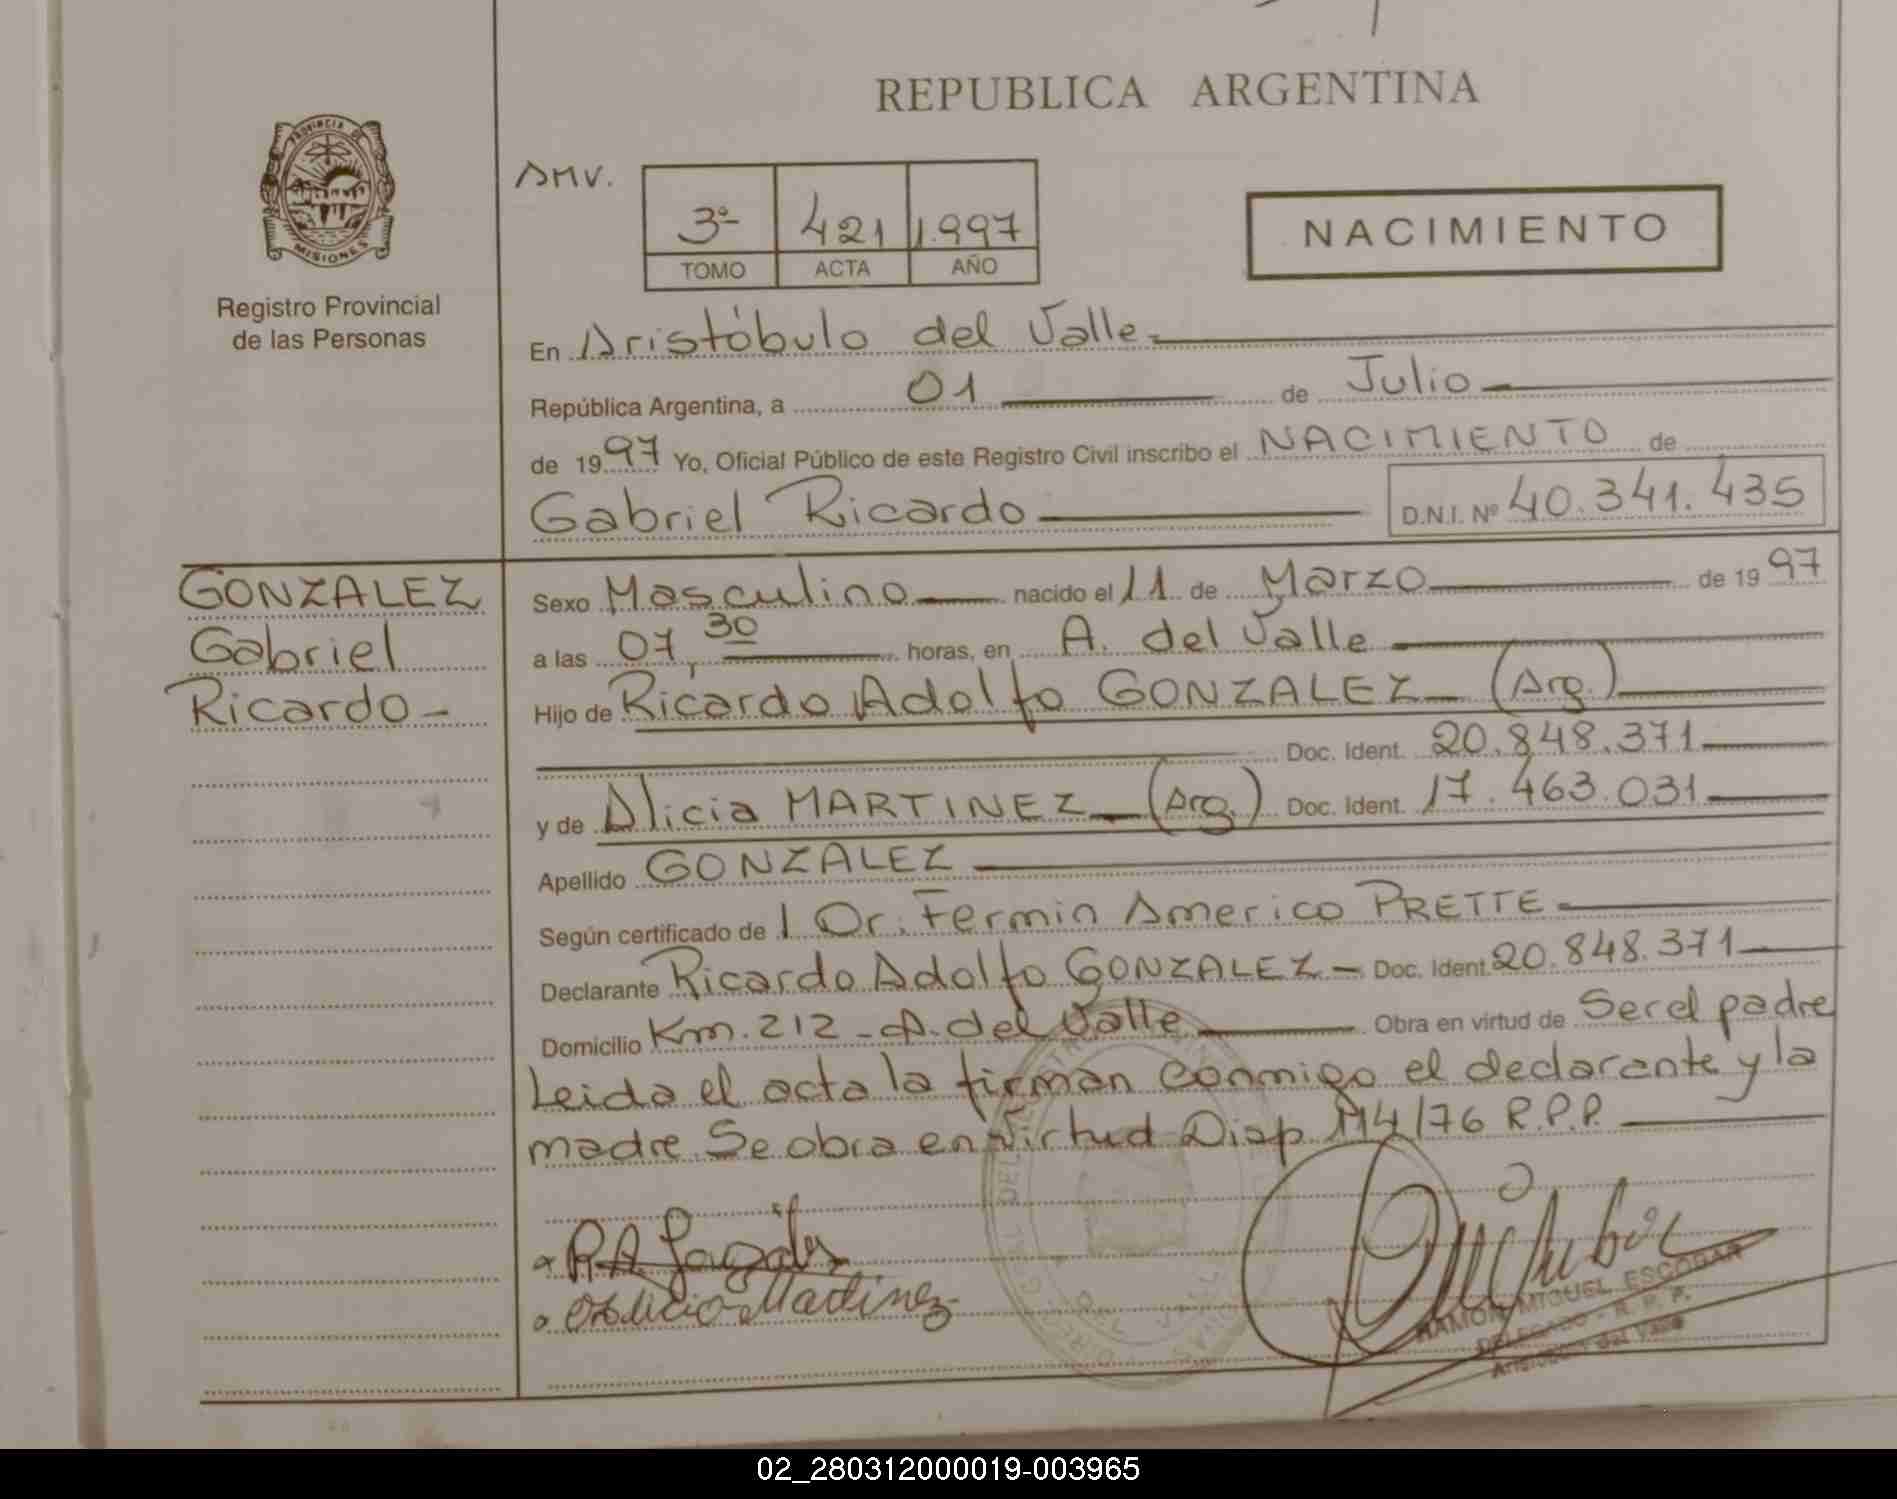 REPUBLICA ARGENTINA
PROVINCIA DE
MISIONES
Registro Provincial
de las Personas
AMV.
3º 421 1.997
TOMO ACTA AÑO
NACIMIENTO
En Aristóbulo del Valle
República Argentina, a 01 de Julio
de 1997 Yo, Oficial Público de este Registro Civil inscribo el NACIMIENTO de
Gabriel Ricardo D.N.I. Nº 40.341.435
GONZALEZ
Gabriel
Ricardo
Sexo Masculino nacido el 11 de Marzo de 1997
a las 07,30 horas, en A. del Valle
Hijo de Ricardo Adolfo GONZALEZ (Arg.)
Doc. Ident. 20.848.371
y de Alicia MARTINEZ (Arg.) Doc. Ident. 17.463.031
Apellido GONZALEZ
Según certificado de Dr. Fermin Americo PRETTE
Declarante Ricardo Adolfo GONZALEZ Doc. Ident. 20.848.371
Domicilio Km. 212 - A. del Valle Obra en virtud de Ser el padre
Leida el acta la firman conmigo el declarante y la
madre. Se obra en virtud Disp. 114/76 R.P.P.
R.A. Gonzalez
Alicia Martinez
RAMON MIGUEL ESCOBAR
DELEGADO - R. P. P.
Aristobulo del Valle
02_280312000019-003965